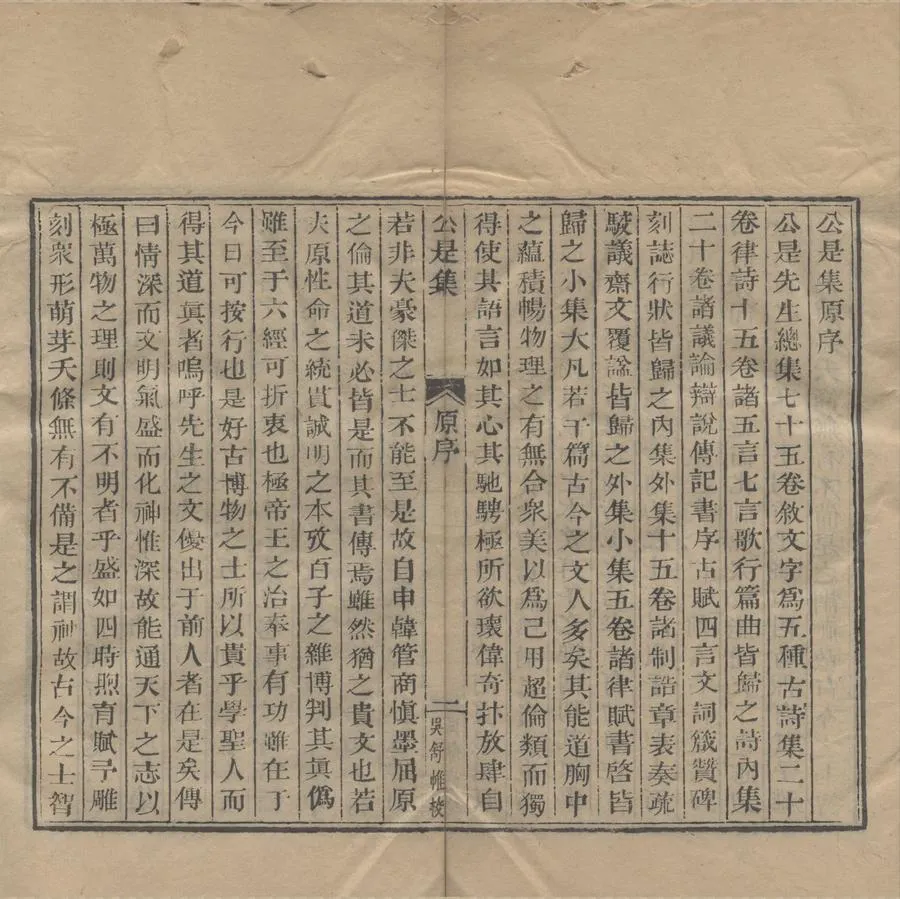 公是集原序
公是先生總集七十五卷敘文字爲五種古詩集二十
卷律詩十五卷諸五言七言歌行篇曲皆歸之詩內集
二十卷諸議論辯說傳記書序古賦四言文詞箴贊碑
刻誌行狀皆歸之內集外集十五卷諸制誥章表奏疏
駮議齋文覆謚皆歸之外集小集五卷諸律賦書啓皆
歸之小集大凡若干篇古今之文人多矣其能道胸中
之蘊積暢物理之有無合衆美以爲己用超倫類而獨
得使其語言如其心其馳騁極所欲瓌偉奇抃放肆自
公是集
原序
一
吳舒帷校
若非夫豪傑之士不能至是故自申韓管商愼墨屈原
之倫其道未必皆是而其書傳焉雖然猶之貴文也若
夫原性命之統貫誠明之本攷百子之雜博判其眞僞
雖至于六經可折衷也極帝王之治奉事有功雖在于
今日可按行也是好古博物之士所以貴乎學聖人而
得其道眞者嗚呼先生之文優出于前人者在是矣傳
曰情深而文明氣盛而化神惟深故能通天下之志以
極萬物之理則文有不明者乎盛如四時煦育賦予雕
刻衆形萌芽夭條無有不備是之謂神故古今之士智